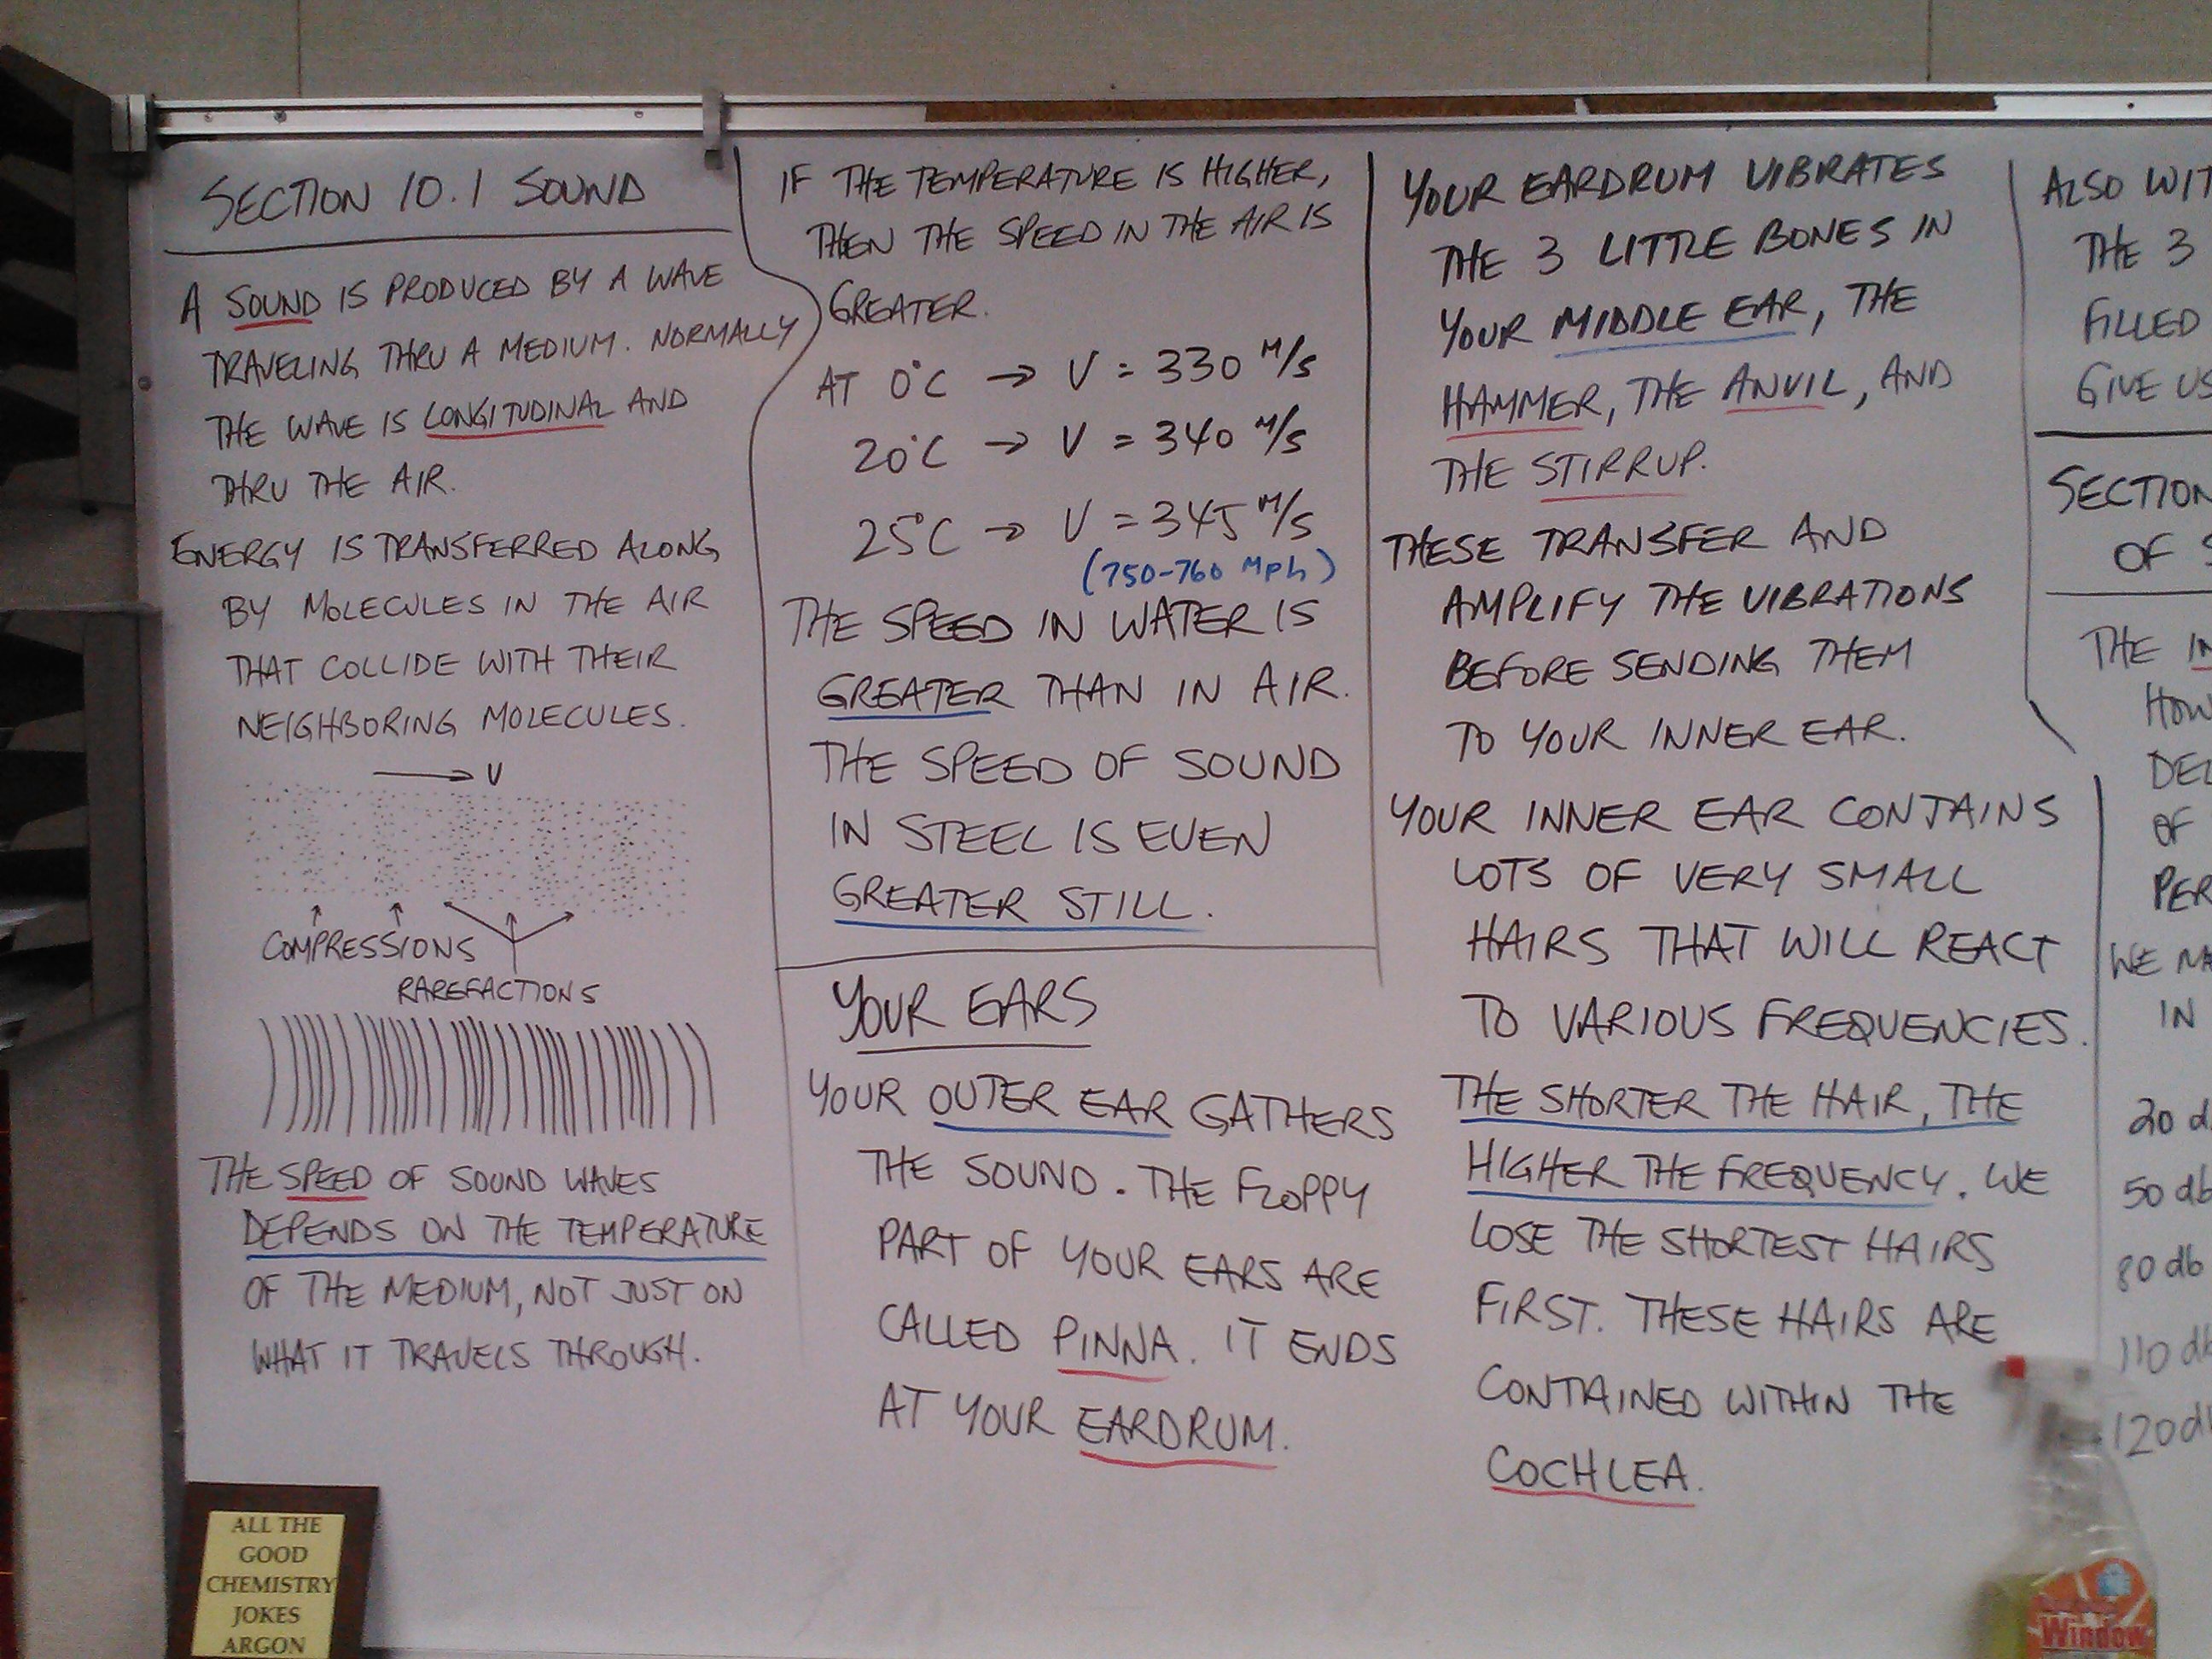 SECTION 10.1 SOUND
A SOUND IS PRODUCED BY A WAVE
TRAVELING THRU A MEDIUM. NORMALLY
THE WAVE IS LONGITUDINAL AND
THRU THE AIR.
ENERGY IS TRANSFERRED ALONG
BY MOLECULES IN THE AIR
THAT COLLIDE WITH THEIR
NEIGHBORING MOLECULES.
→ V
COMPRESSIONS
RAREFACTIONS
THE SPEED OF SOUND WAVES
DEPENDS ON THE TEMPERATURE
OF THE MEDIUM, NOT JUST ON
WHAT IT TRAVELS THROUGH.
IF THE TEMPERATURE IS HIGHER,
THEN THE SPEED IN THE AIR IS
GREATER.
AT 0°C → V = 330 M/S
20°C → V = 340 M/S
25°C → V = 345 M/S
(750-760 MPh)
THE SPEED IN WATER IS
GREATER THAN IN AIR.
THE SPEED OF SOUND
IN STEEL IS EVEN
GREATER STILL.
YOUR EARS
YOUR OUTER EAR GATHERS
THE SOUND. THE FLOPPY
PART OF YOUR EARS ARE
CALLED PINNA. IT ENDS
AT YOUR EARDRUM.
YOUR EARDRUM VIBRATES
THE 3 LITTLE BONES IN
YOUR MIDDLE EAR, THE
HAMMER, THE ANVIL, AND
THE STIRRUP.
THESE TRANSFER AND
AMPLIFY THE VIBRATIONS
BEFORE SENDING THEM
TO YOUR INNER EAR.
YOUR INNER EAR CONTAINS
LOTS OF VERY SMALL
HAIRS THAT WILL REACT
TO VARIOUS FREQUENCIES.
THE SHORTER THE HAIR, THE
HIGHER THE FREQUENCY. WE
LOSE THE SHORTEST HAIRS
FIRST. THESE HAIRS ARE
CONTAINED WITHIN THE
COCHLEA.
ALSO WIT
THE 3
FILLED
GIVE US
SECTION
OF S
THE IN
HOW
DEL
OF
PER
WE MA
IN
20 d
50 db
80 db
110 db
120 d
ALL THE
GOOD
CHEMISTRY
JOKES
ARGON
Window